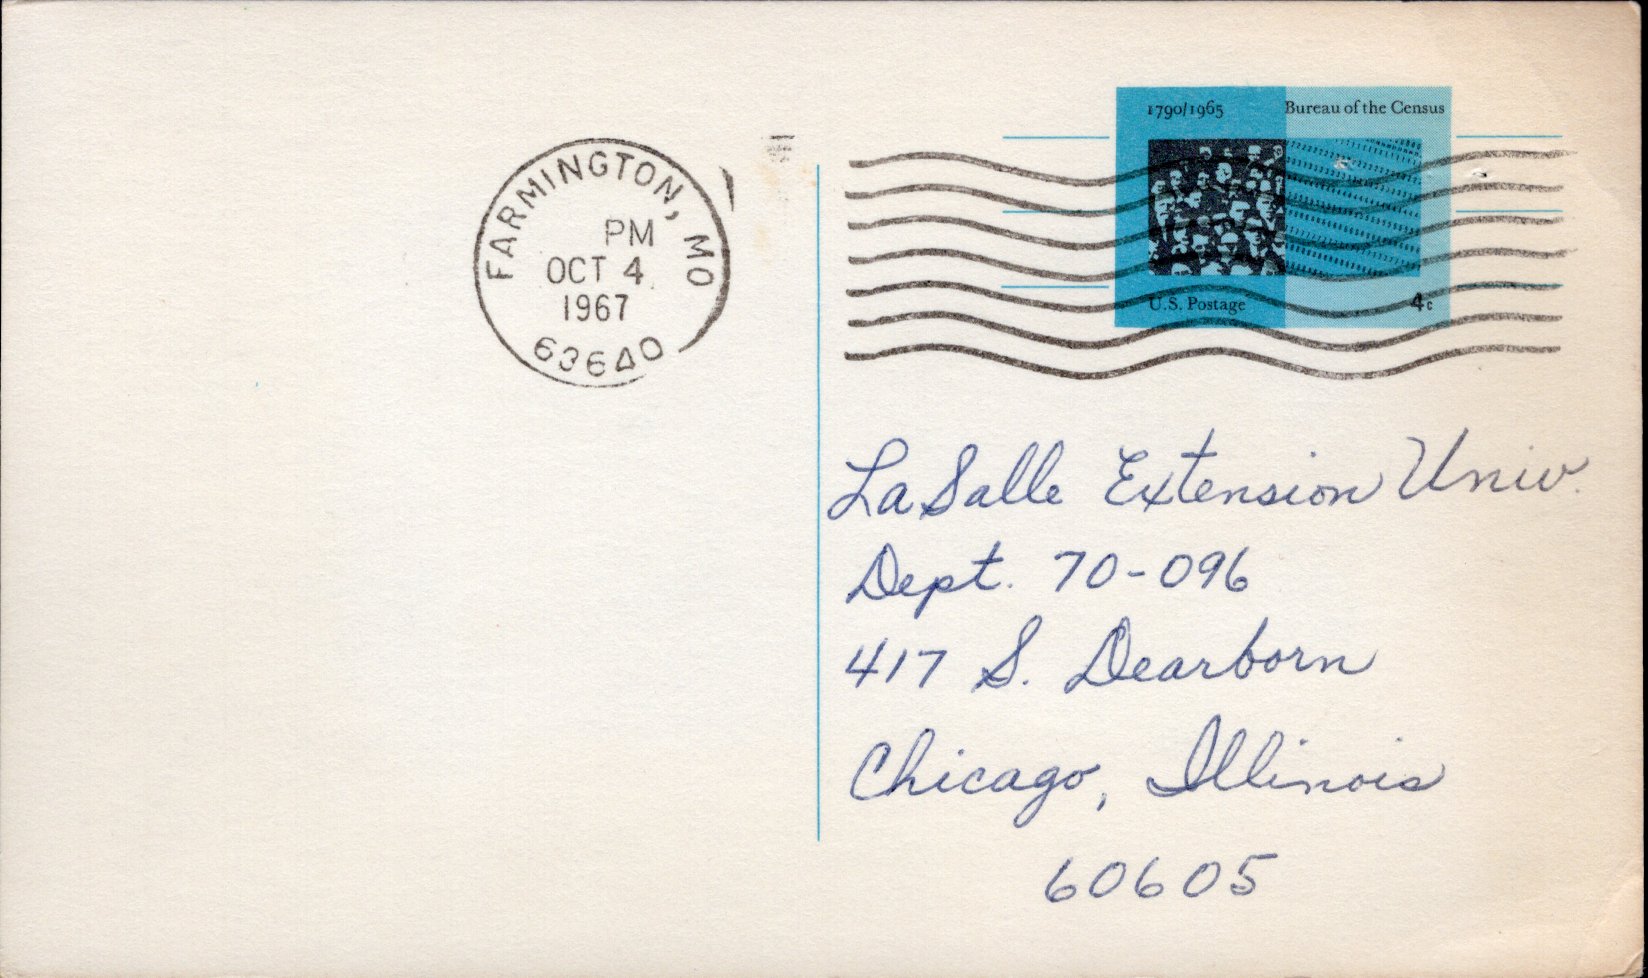 1790/1965 Bureau of the Census
U.S. Postage 4c
FARMINGTON, MO
PM
OCT 4
1967
63640
LaSalle Extension Univ.
Dept. 70-096
417 S. Dearborn
Chicago, Illinois
60605